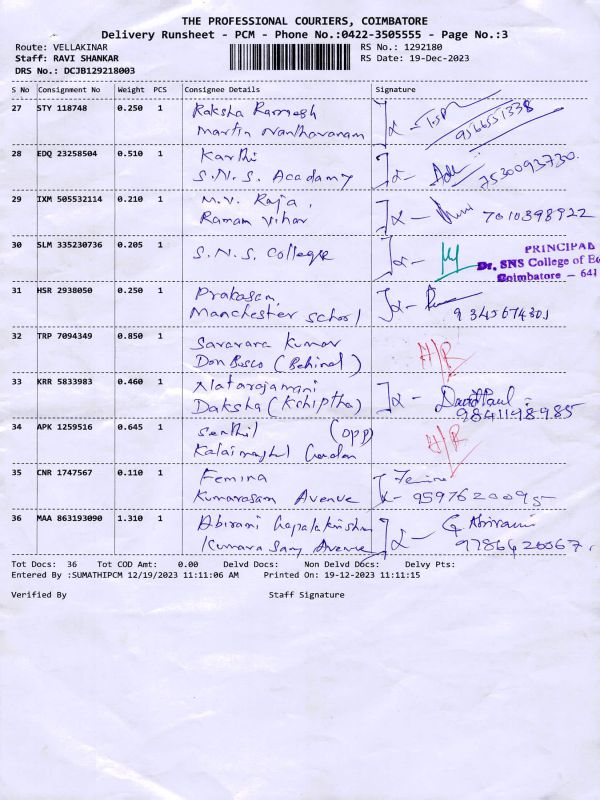 THE PROFESSIONAL COURIERS, COIMBATORE
Delivery Runsheet - PCM - Phone No.:0422-3505555 - Page No.:3
Route: VELLAKINAR RS No.: 1292180
Staff: RAVI SHANKAR RS Date: 19-Dec-2023
DRS No.: DCJB129218003
S No Consignment No Weight PCS Consignee Details Signature
27 STY 118748 0.250 1 Raksha Ramesh
Martin Nanthavanam 9566551338
28 EDQ 23258504 0.510 1 Karthi
S.N.S. Acadamy 7530093730.
29 IXM 505532114 0.210 1 M.V. Raja,
Raman Vihar 7010398922
30 SLM 335230736 0.205 1 S.N.S. College
PRINCIPAL
Dr. SNS College of E
Coimbatore – 641
31 HSR 2938050 0.250 1 Prakasam,
Manchester School 9345674301
32 TRP 7094349 0.850 1 Saravana Kumar H/R
Don Bosco (Behind)
33 KRR 5833983 0.460 1 Natarajamani
Daksha 9841148985
34 APK 1259516 0.645 1 Senthil (opp) H/R
35 CNR 1747567 0.110 1 Femina Femina
Kumarasam Avenue 9597620095
36 MAA 863193090 1.310 1 Abirami Gopalakrishnan G Abirami
Kumara Samy Avenue 9786420067.
Tot Docs: 36 Tot COD Amt: 0.00 Delvd Docs: Non Delvd Docs: Delvy Pts:
Entered By :SUMATHIPCM 12/19/2023 11:11:06 AM Printed On: 19-12-2023 11:11:15
Verified By Staff Signature